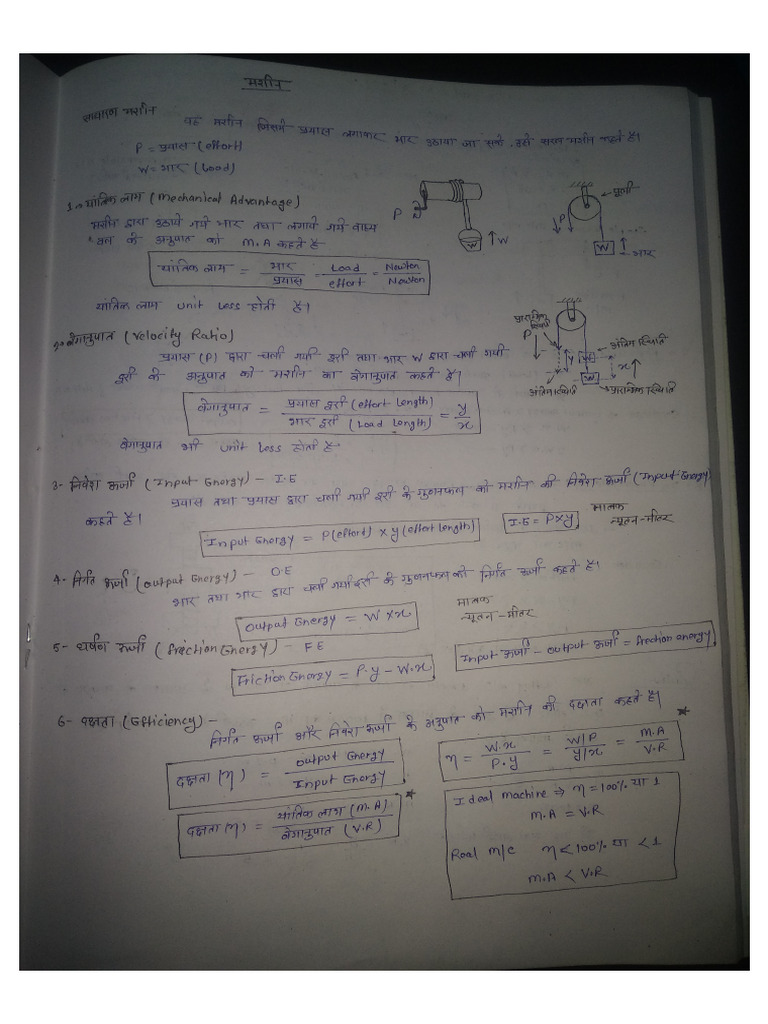 मशीन
साधारण मशीन
वह मशीन जिसमें प्रयास लगाकर भार उठाया जा सके, उसे सरल मशीन कहते है।
P = प्रयास (effort)
W = भार (Load)
1- यांत्रिक लाभ (Mechanical Advantage)
मशीन द्वारा उठाये गये भार तथा लगाये गये वाह्य
बल के अनुपात को M.A कहते है
यांत्रिक लाभ = भार/प्रयास = Load/effort = Newton/Newton
यांत्रिक लाभ unit less होती है।
P
W
W
P
घिरनी
W
भार
2- वेगानुपात (Velocity Ratio)
प्रयास (P) द्वारा चली गयी दूरी तथा भार W द्वारा चली गयी
दूरी के अनुपात को मशीन का वेगानुपात कहते है।
वेगानुपात = प्रयास दूरी (effort Length)/भार दूरी (Load Length) = y/x
वेगानुपात भी unit Less होता है
प्रारम्भिक स्थिति
P
y
W
अंतिम स्थिति
x
W
अंतिम स्थिति
प्रारम्भिक स्थिति
3- निवेश ऊर्जा (Input Energy) - I.E
प्रयास तथा प्रयास द्वारा चली गयी दूरी के गुणनफल को मशीन की निवेश ऊर्जा (Input Energy)
कहते है।
Input Energy = P(effort) x y(effort length)
I.E = P x y
मात्रक
न्यूटन-मीटर
4- निर्गत ऊर्जा (output Energy) - O.E
भार तथा भार द्वारा चली गयी दूरी के गुणनफल को निर्गत ऊर्जा कहते है।
Output Energy = W x x
मात्रक
न्यूटन-मीटर
5- घर्षण ऊर्जा (friction Energy) - FE
Friction Energy = P.y - W.x
Input ऊर्जा - output ऊर्जा = friction energy
6- दक्षता (Efficiency) -
निर्गत ऊर्जा और निवेश ऊर्जा के अनुपात को मशीन की दक्षता कहते है।
दक्षता (η) = Output Energy/Input Energy
η = W.x/P.y = W/P/y/x = M.A/V.R
दक्षता (η) = यांत्रिक लाभ (M.A)/वेगानुपात (V.R)
Ideal machine ⇒ η = 100% या 1
M.A = V.R
Real m/c η < 100% या < 1
M.A < V.R